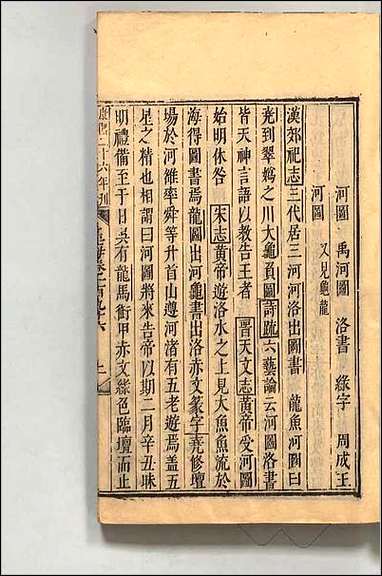 河圖 禹河圖 洛書 綠字 周成王
又見龜龍
河圖
漢郊祀志三代居三河河洛出圖書 龍魚河圖曰
光到翠嬀之川大龜負圖詩疏六藝論云河圖洛書
皆天神言語以敎告王者 晋天文志黃帝受河圖
始明休咎 宋志黃帝遊洛水之上見大魚魚流於
海得圖書焉龍圖出河龜書出洛赤文篆字堯修壇
場於河雒率舜等升首山遵河渚有五老遊焉蓋五
星之精也相謂曰河圖將來告帝以期二月辛丑昧
明禮備至于日昃有龍馬銜甲赤文綠色臨壇而止
康熙二十六年刊